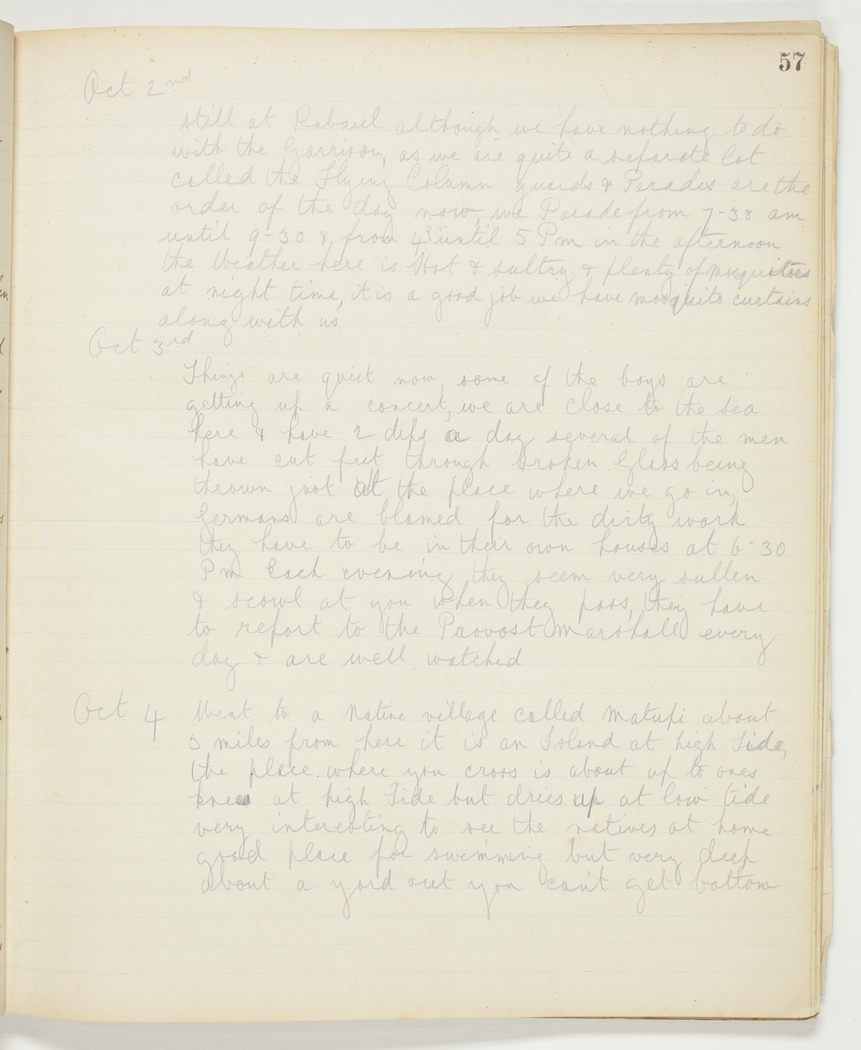 57
Oct 2nd
still at Rabaul although we have nothing to do
with the Garrison, as we are quite a seperate lot
called the Flying Column guards & Parades are the
order of the day now, we Parade from 7-30 am
until 9-30 & from 4 until 5 Pm in the afternoon
the Weather here is Hot & sultry & plenty of mosquitoes
at night time, it is a good job we have mosquito curtains
along with us
Oct 3rd
Things are quiet now, some of the boys are
getting up a concert, we are close to the sea
here & have 2 dips a day several of the men
have cut feet through broken Glass being
thrown just at the place where we go in,
Germans are blamed for the dirty work
they have to be in their own houses at 6-30
Pm Each evening they seem very sullen
& scowl at you when they pass, they have
to report to the Provost Marshall every
day & are well watched
Oct 4 Went to a Native village called Matupi about
3 miles from here it is an Island at high tide,
the place where you cross is about up to ones
knees at high tide but dries up at low tide
very interesting to see the natives at home
good place for swimming but very deep
about a yard out you can't get bottom